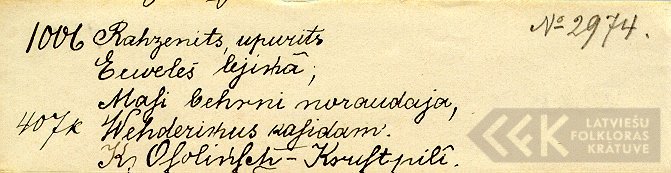 1006 Rahzenits, upurits
№ 2974.
Eeweles lejinâ;
Masi behrni noraudaja,
407k Wehderinus rasidam.
K. Osolinsch - Krustpilî.
LATVIEŠU
FOLKLORAS
KRĀTUVE